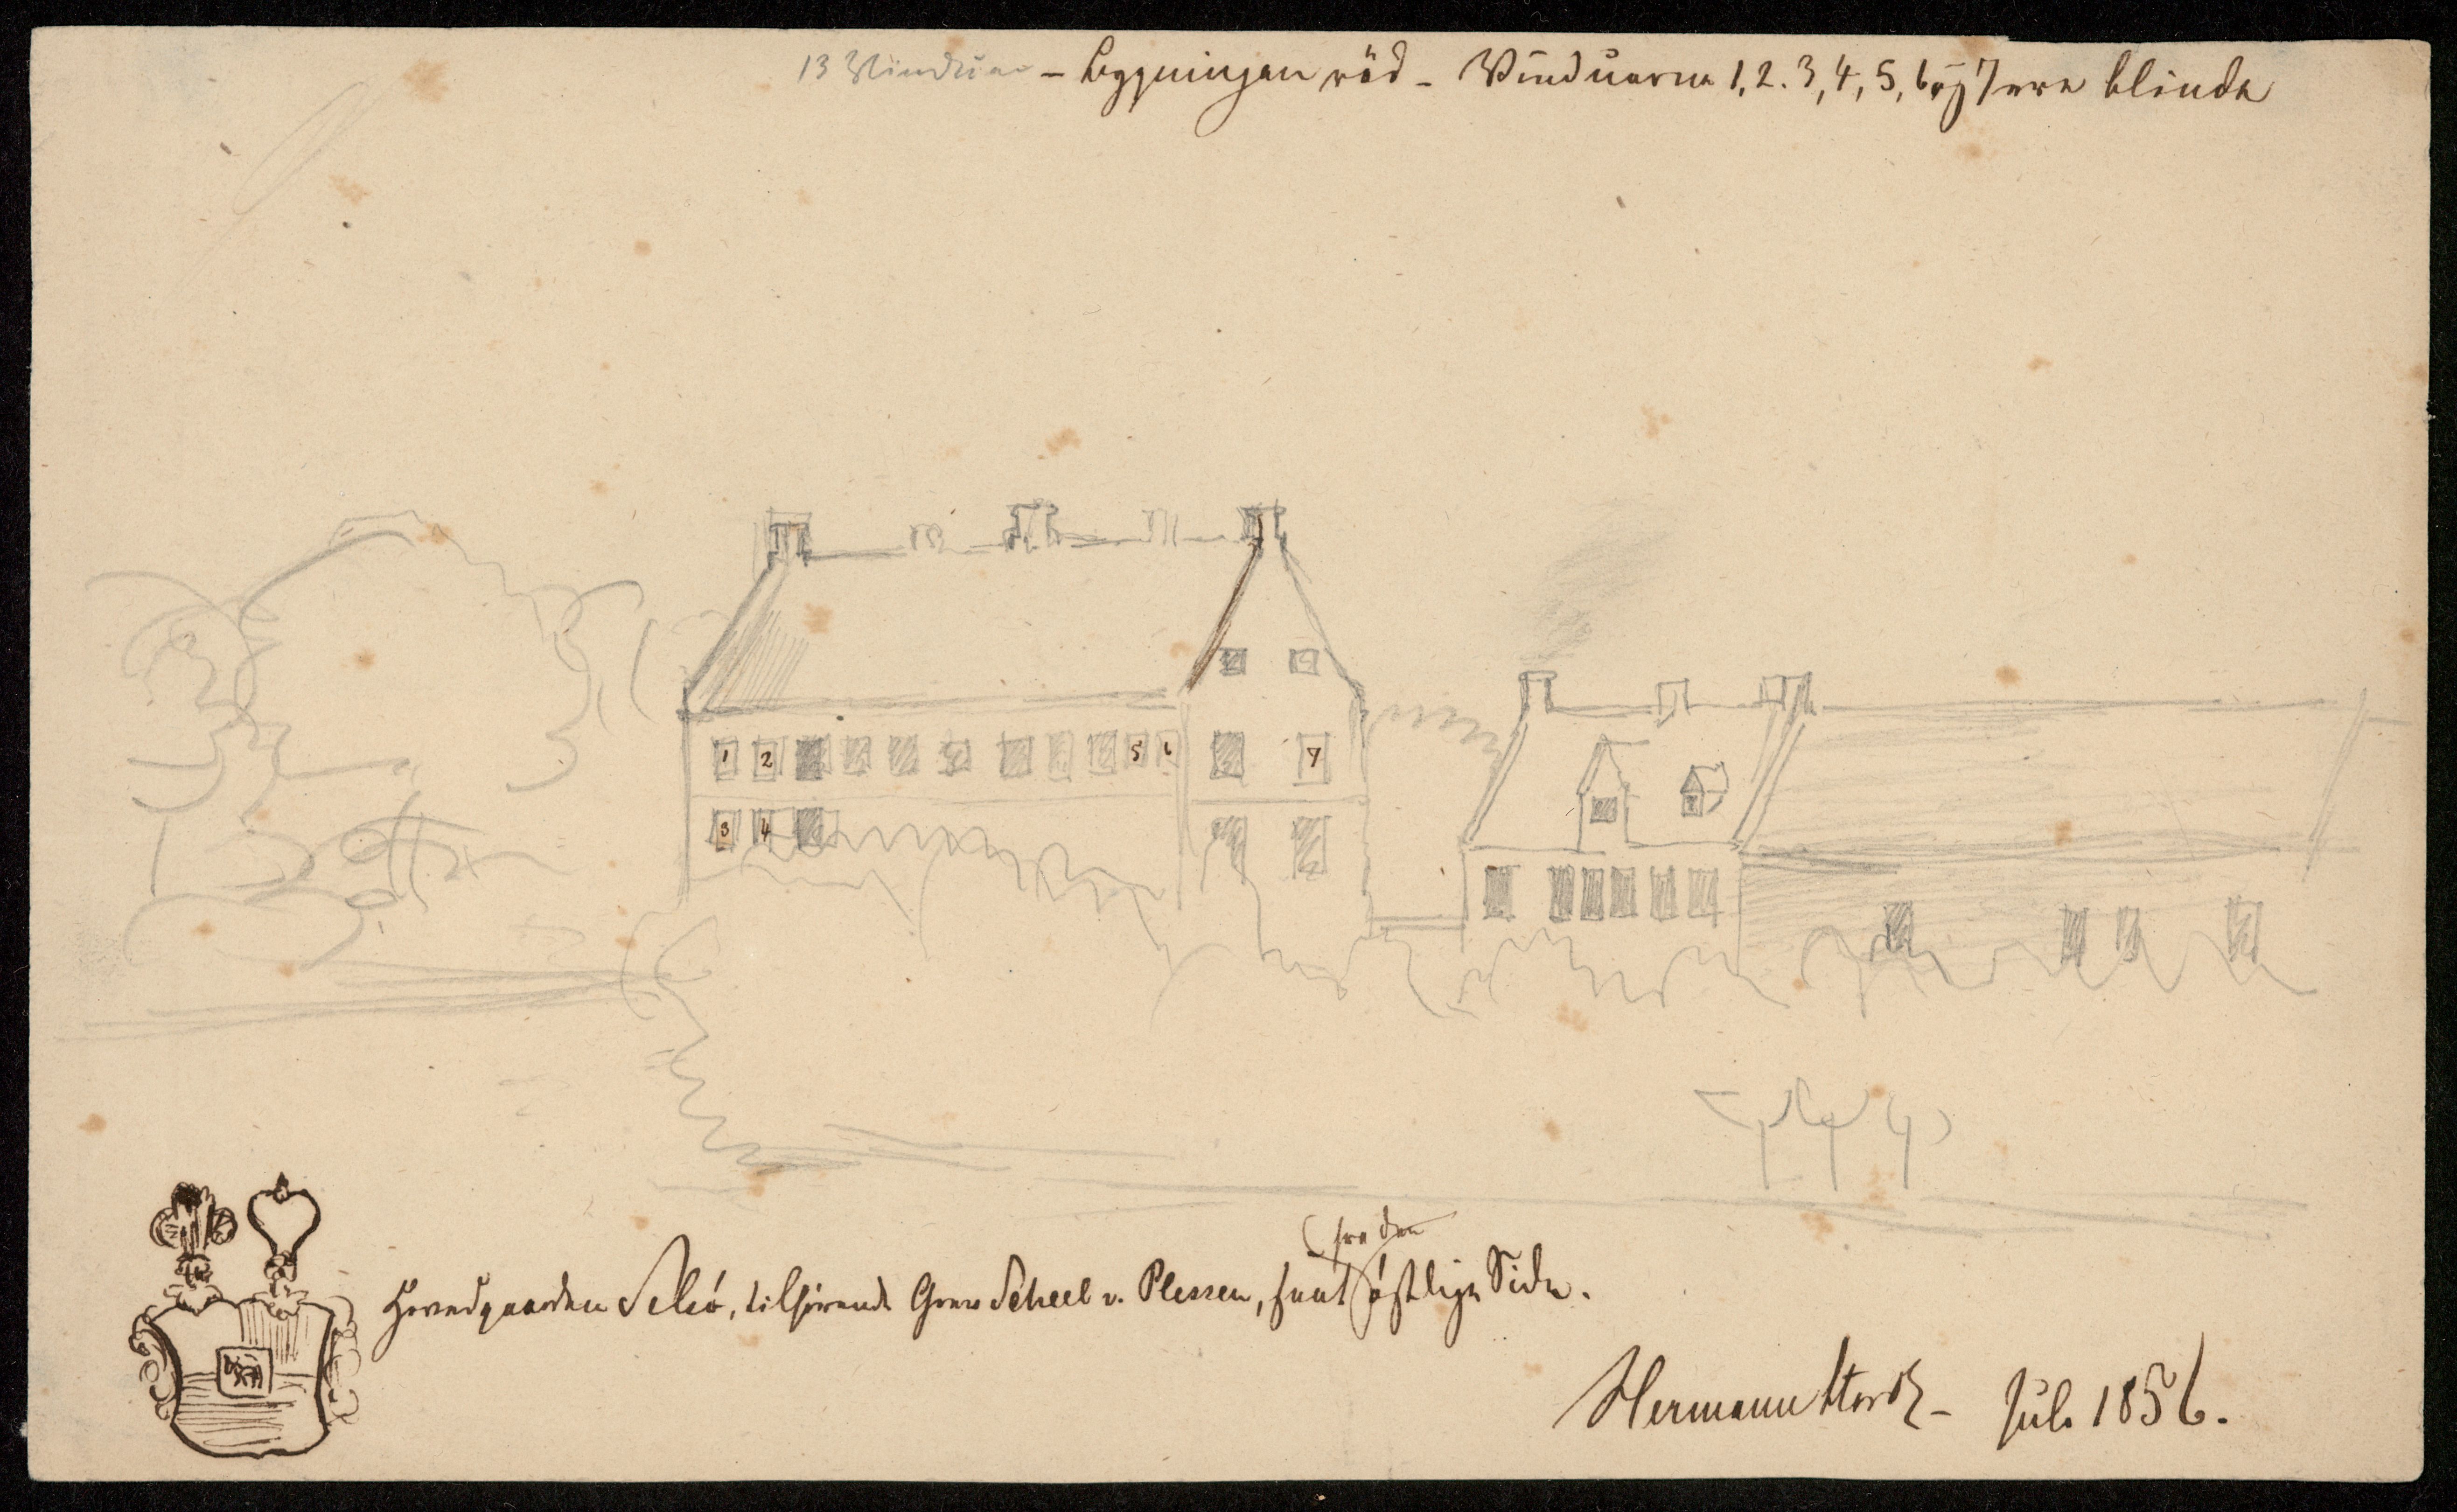 13 Vinduer – Bygningen röd – Vinduerne 1, 2. 3, 4, 5, 6 og 7 ere blinde
1 2 5 6 7
3 4
(fra den
Hovedgaarden Selsö, tilhörende Grev Scheel v. Plessen, seet östlige Side.
Hermann Storck – Juli 1856.